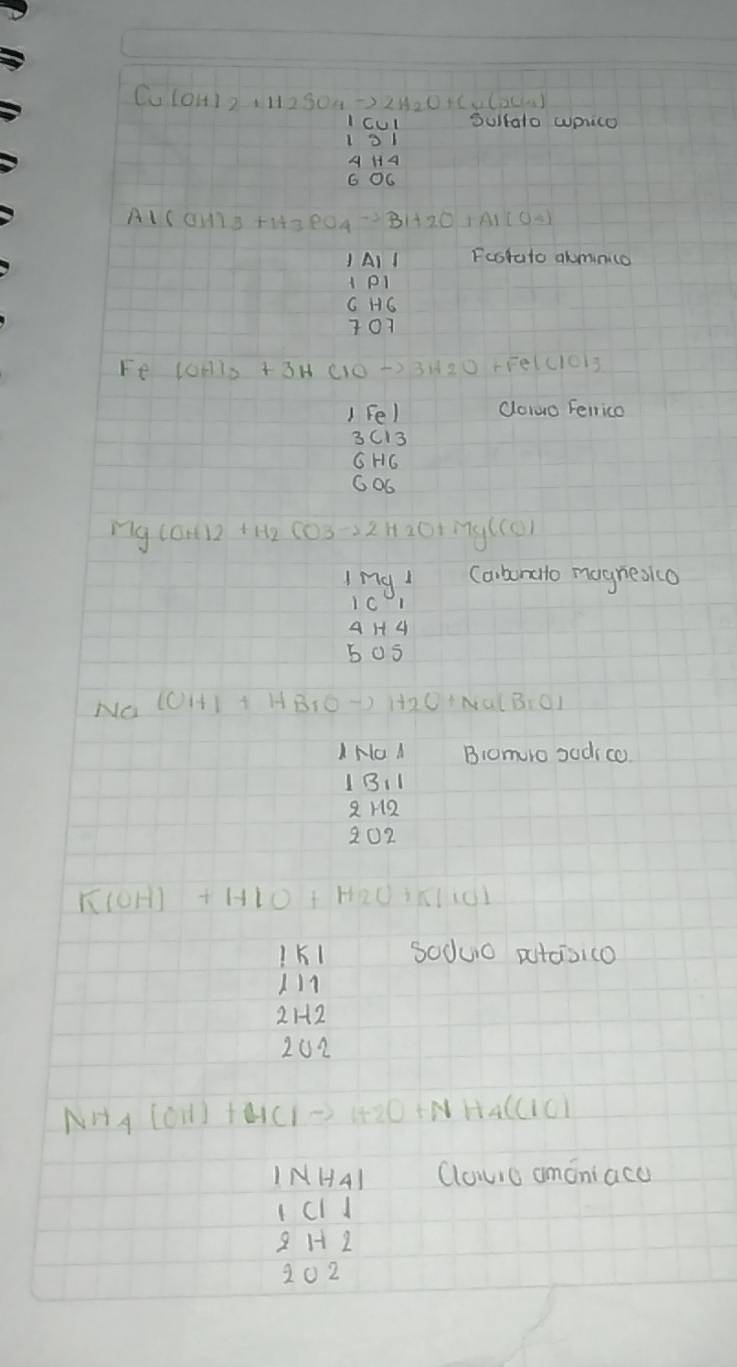 Cu(OH)2 + H2SO4 -> 2H2O + Cu(SO4)
1 Cu 1 Sulfato cuprico
1 S 1
4 H 4
6 O 6
Al(OH)3 + H3PO4 -> 3H2O + Al(O4)
1 Al 1 Fosfato aluminico
1 P 1
6 H 6
7 O 7
Fe (OH)3 + 3H ClO -> 3H2O + Fe(ClO)3
1 Fe 1 Cloruro Ferrico
3 Cl 3
6 H 6
6 O 6
Mg(OH)2 + H2 CO3 -> 2H2O + Mg(CO)
1 Mg 1 Carbonato magnesico
1 C 1
4 H 4
5 O 5
Na (OH) + HBrO -> H2O + Na(BrO)
1 Na 1 Bromuro sodico.
1 Br 1
2 H 2
2 O 2
K(OH) + HIO + H2O + K(IO)
1 K 1 potásico
1 I 1
2 H 2
2 O 2
NH4 (OH) + HCl -> H2O + NH4(ClO)
1 NH4 1 Cloruro amóniaco
1 Cl 1
2 H 2
2 O 2